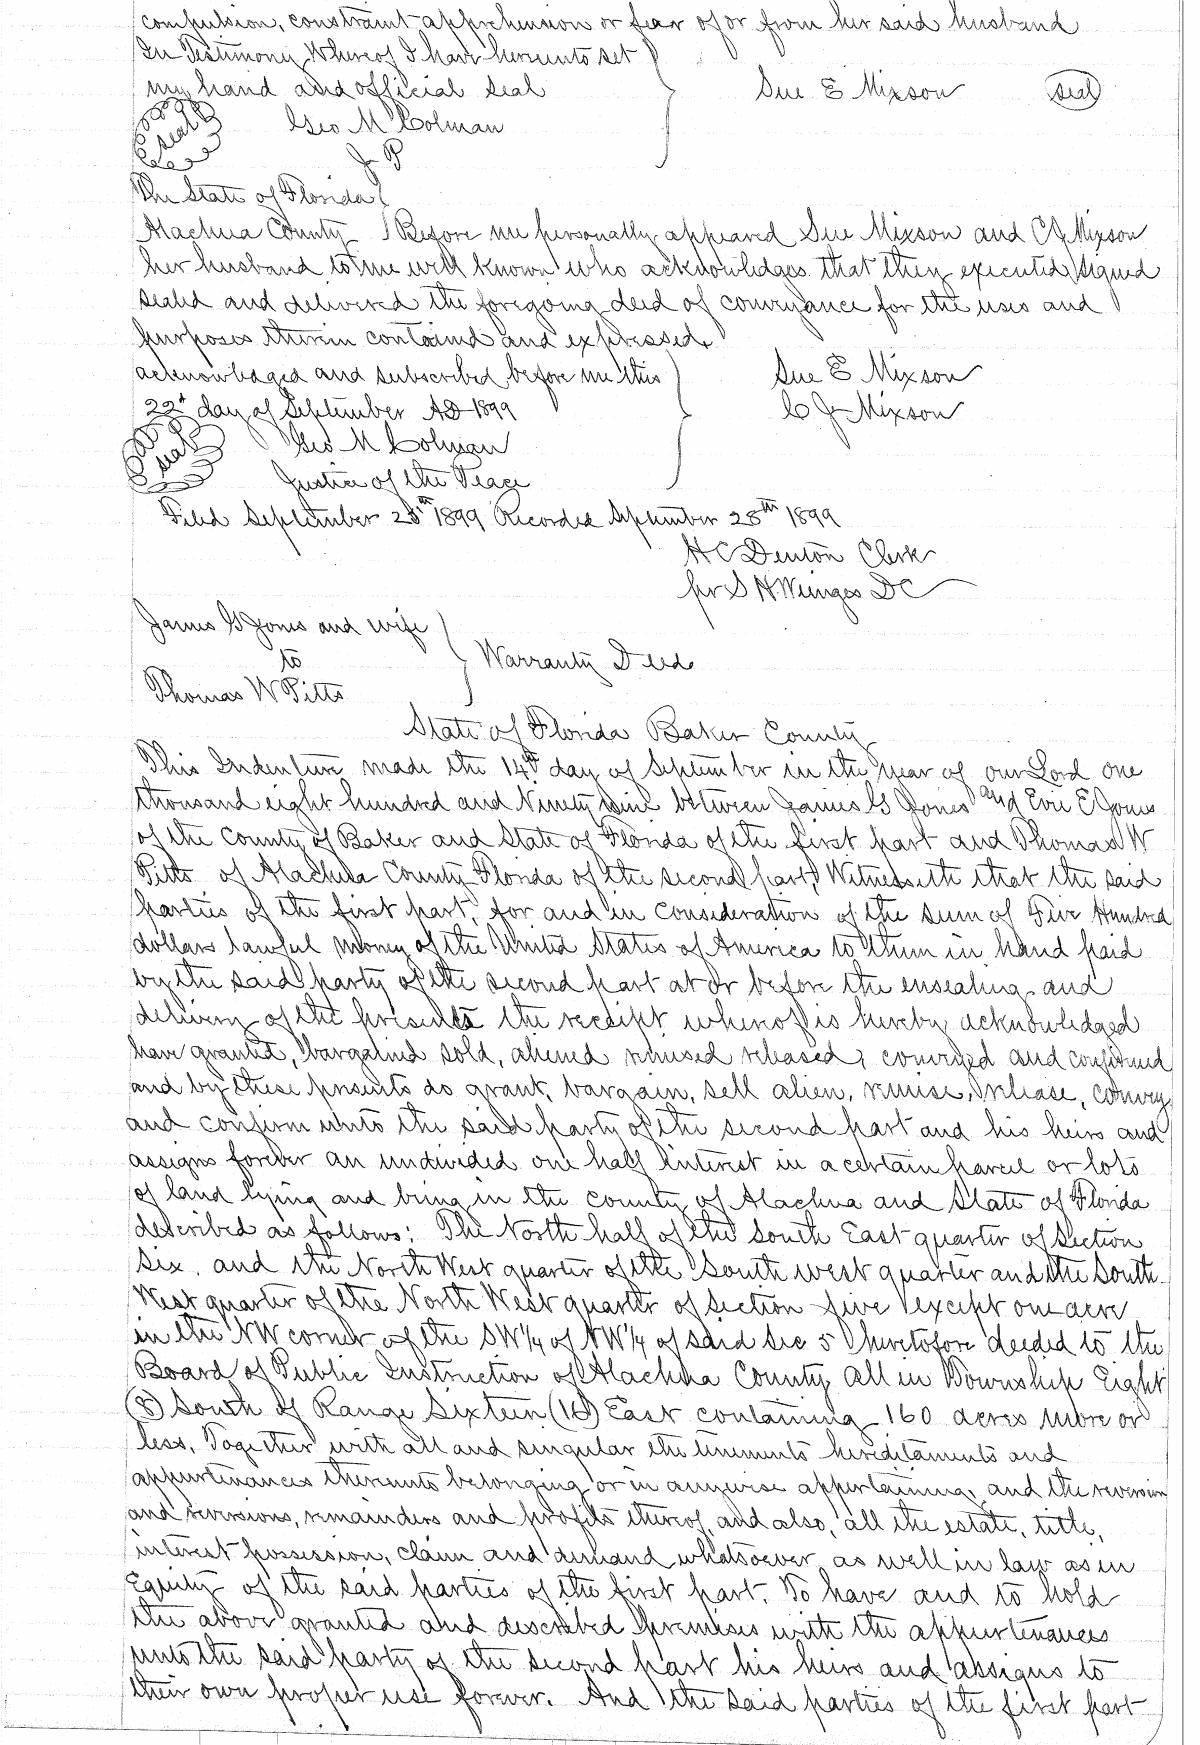 compulsion, constraint apprehension or fear of or from her said husband
In Testimony Whereof I have hereunto set
my hand and official seal
Sue E Mixson seal
seal Geo M Colman
J P
The State of Florida
Alachua County Before me personally appeared Sue Mixson and C J Mixson
her husband to me well known who acknowledges that they executed signed
sealed and delivered the foregoing deed of conveyance for the uses and
purposes therein contained and expressed.
acknowledged and subscribed before me this
Sue E Mixson
22d day of September AD 1899
C J Mixson
seal Geo M Colman
Justice of the Peace
Filed September 28th 1899 Recorded September 28th 1899
H C Denton Clerk
pr S H Wienges DC
James G Jones and wife
to
Warranty Deed
Thomas W Pitts
State of Florida Baker County
This Indenture made the 14th day of September in the year of our Lord one
thousand eight hundred and Ninety nine between James G Jones and Evie E Jones
of the County of Baker and State of Florida of the first part and Thomas W
Pitts of Alachua County Florida of the second part, Witnesseth that the said
parties of the first part, for and in consideration of the sum of Five Hundred
dollars lawful money of the United States of America to them in hand paid
by the said party of the second part at or before the ensealing and
delivery of the presents the receipt whereof is hereby acknowledged
have granted, bargained sold, aliened remised released, conveyed and confirmed
and by these presents do grant, bargain, sell alien, remise, release, convey
and confirm unto the said party of the second part and his heirs and
assigns forever an undivided one half interest in a certain parcel or lots
of land lying and being in the county of Alachua and State of Florida
described as follows: The North half of the South East quarter of Section
Six. and the North West quarter of the South west quarter and the South
West quarter of the North West quarter of Section five except one acre
in the NW corner of the SW¼ of NW¼ of said Sec 5 heretofore deeded to the
Board of Public Instruction of Alachua County all in Township Eight
(8) South of Range Sixteen (16) East containing 160 acres more or
less, Together with all and singular the tenements hereditaments and
appurtenances thereunto belonging or in anywise appertaining, and the reversion
and reversions, remainders and profits thereof, and also, all the estate, title,
interest possession, claim and demand whatsoever as well in law as in
Equity of the said parties of the first part. To have and to hold
the above granted and described premises with the appurtenances
unto the said party of the second part his heirs and assigns to
their own proper use forever. And the said parties of the first part